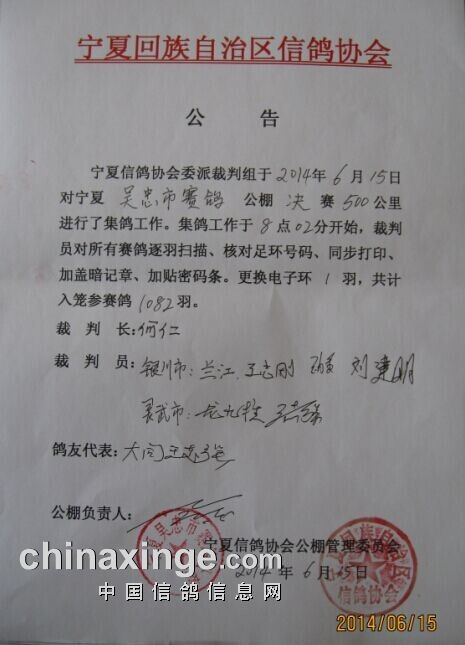 宁夏回族自治区信鸽协会
公 告
宁夏信鸽协会委派裁判组于2014年6月15日
对宁夏 吴忠市赛鸽 公棚 决 赛 500公里
进行了集鸽工作。集鸽工作于8点02分开始，裁判
员对所有赛鸽逐羽扫描、核对足环号码、同步打印、
加盖暗记章、加贴密码条。更换电子环 1 羽，共计
入笼参赛鸽 1082 羽。
裁 判 长：何仁
裁 判 员：银川市：兰江、王志刚 刘建明
灵武市：
鸽友代表：
公棚负责人：
宁夏信鸽协会公棚管理委员会
2014 年 6 月 15 日
信鸽协会
chinaxinge.com
中国信鸽信息网
2014/06/15